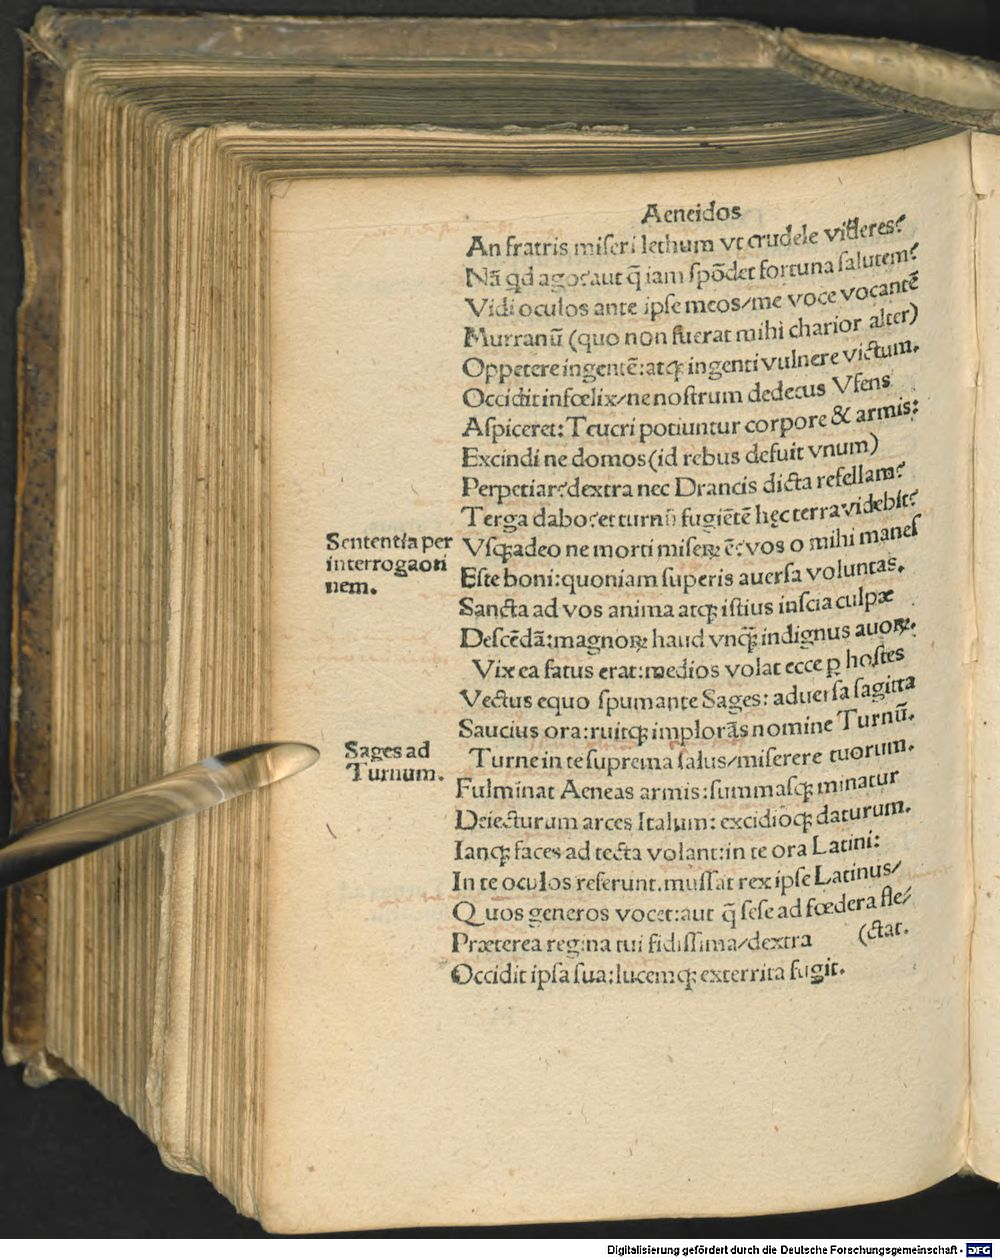 Aeneidos
An fratris miſeri lethum vt crudele videres?
Nã qd ago? aut q̃ iam ſpõdet fortuna ſalutem?
Vidi oculos ante ipſe meos/me voce vocantẽ
Murranũ (quo non fuerat mihi charior alter)
Oppetere ingentẽ: atqꝫ ingenti vulnere victum.
Occidit infœlix/ne noſtrum dedecus Vfens
Aſpiceret: Teucri potiuntur corpore & armis:
Excindi ne domos (id rebus defuit vnum)
Perpetiar? dextra nec Drancis dicta refellam?
Terga dabo? et turnũ fugiẽtẽ hęc terra videbit?
Sententia per
interrogaoti
nem.
Vſqꝫ adeo ne morti miſeꝝ ẽ? vos o mihi maneſ
Eſte boni: quoniam ſuperis auerſa voluntas.
Sancta ad vos anima atqꝫ iſtius inſcia culpæ
Deſcẽdã: magnoꝝ haud vnq̃ꝫ indignus auoꝝ.
Vix ea fatus erat: medios volat ecce ꝑ hoſtes
Vectus equo ſpumante Sages: aduerſa ſagitta
Saucius ora: ruitqꝫ implorãs nomine Turnũ.
Sages ad
Turnum.
Turne in te ſuprema ſalus/miſerere tuorum.
Fulminat Aeneas armis: ſummaſqꝫ minatur
Deiecturum arces Italum: excidioqꝫ daturum.
Ianqꝫ faces ad tecta volant: in te ora Latini:
In te oculos referunt. muſſat rex ipſe Latinus/
Quos generos vocet: aut q̃ ſeſe ad fœdera fle/
Præterea regina tui fidiſſima/dextra (ctat.
Occidit ipſa ſua: lucemqꝫ exterrita fugit.
Digitalisierung gefördert durch die Deutsche Forschungsgemeinschaft - DFG